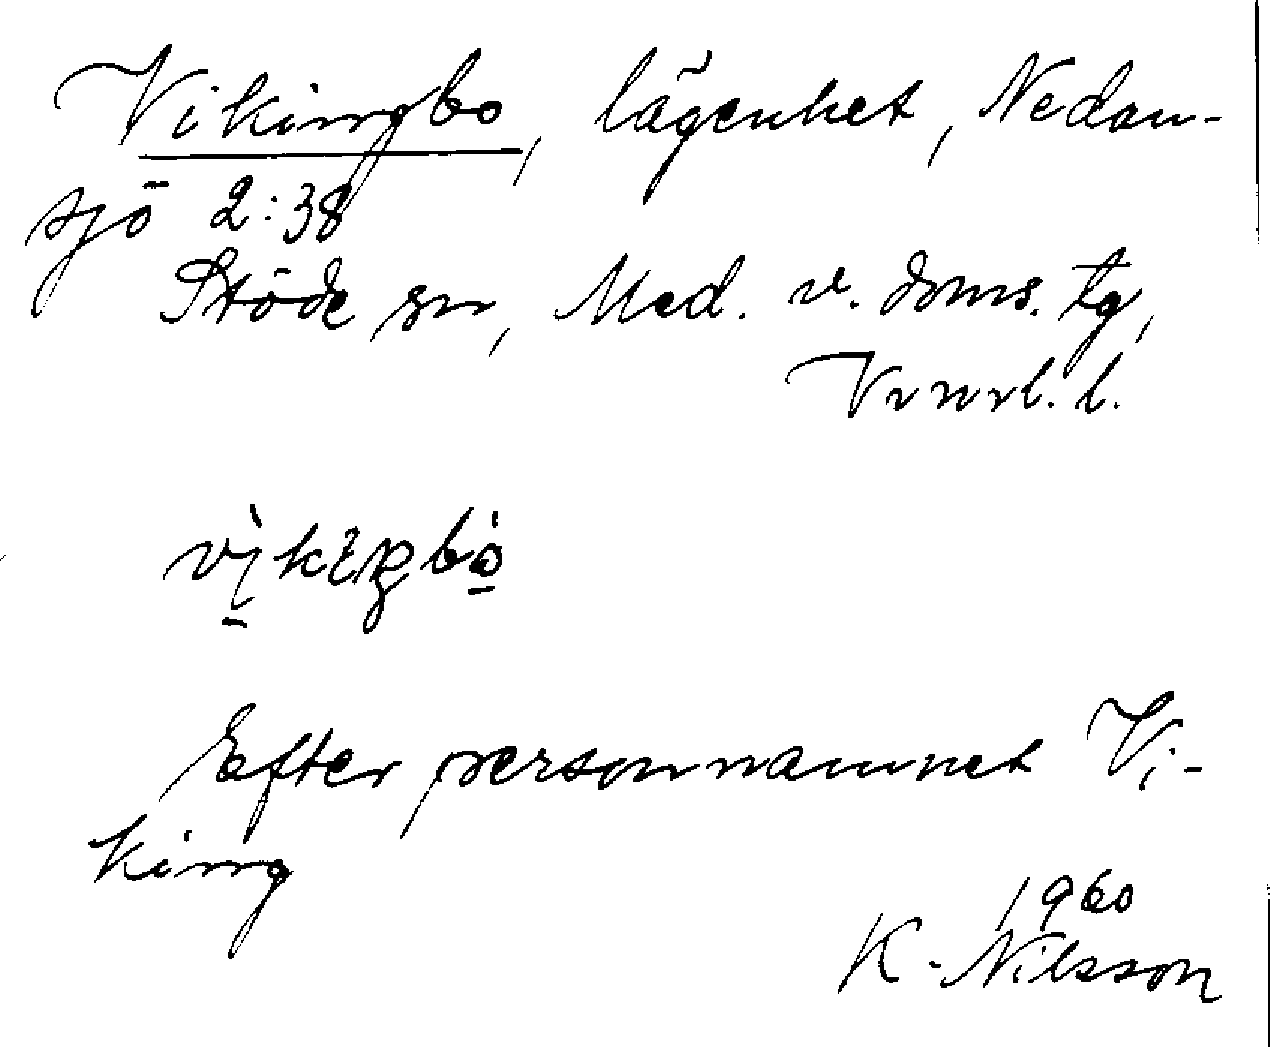 Vikingbo, lägenhet, Nedan-
sjö 2:38
Stöde sn, Med. v. doms. tg,
Vrnrl. l.
vìkiŋbò
Efter personnamnet Vi-
king
1960
K. Nilsson